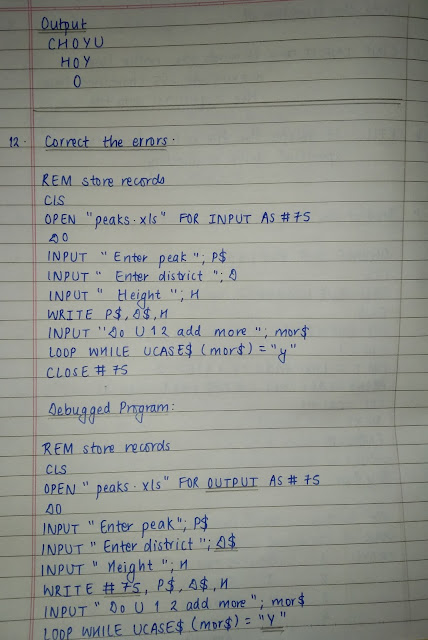 Output
CHOYU
HOY
O
12. Correct the errors.
REM store records
CLS
OPEN "peaks.xls" FOR INPUT AS #75
DO
INPUT "Enter peak"; P$
INPUT "Enter district"; D
INPUT "Height"; H
WRITE P$, D$, H
INPUT "Do U 1 2 add more"; mor$
LOOP WHILE UCASE$ (mor$) = "y"
CLOSE #75
Debugged Program:
REM store records
CLS
OPEN "peaks.xls" FOR OUTPUT AS #75
DO
INPUT "Enter peak"; P$
INPUT "Enter district"; D$
INPUT "Height"; H
WRITE #75, P$, D$, H
INPUT "Do U 1 2 add more"; mor$
LOOP WHILE UCASE$ (mor$) = "Y"